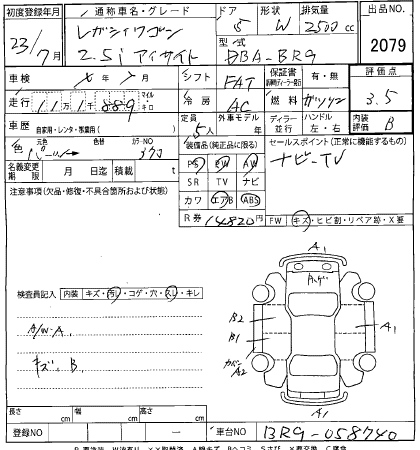 初度登録年月 通称車名・グレード ドア 形状 排気量 出品NO
23/7月 レガシィワゴン 2.5i アイサイト 5 W 2500cc 2079
型式 DBA-BR9
車検 年 月 シフト FAT 保証書 有・無 評価点
走行 11万1千889 マイル キロ 冷房 AC 燃料 ガソリン 3.5
車歴 自家用・レンタ・営業用( ) 定員 5人 外車モデル 年 ディーラー 並行 ハンドル 左・右 内装評価 B
色 元色 パール 色替 カラーNO 37J
装備品(純正品に限る) セールスポイント(正常に機能するもの)
PS PW AW ナビ-TV
名義変更期限 月 日迄 積載 t SR TV ナビ
注意事項(欠品・修復・不具合箇所および状態) カワ エアB ABS
R券 14820円 FW キズ・ヒビ割・リペア跡・X要
検査員記入 内装 キズ・汚レ・コゲ・穴・スレ・キレ
A/W-A
キズ、B
A1
B2
B1
カバー A2
A1
A1
長さ cm 幅 cm 高さ cm
登録NO ー 車台NO BR9-058740